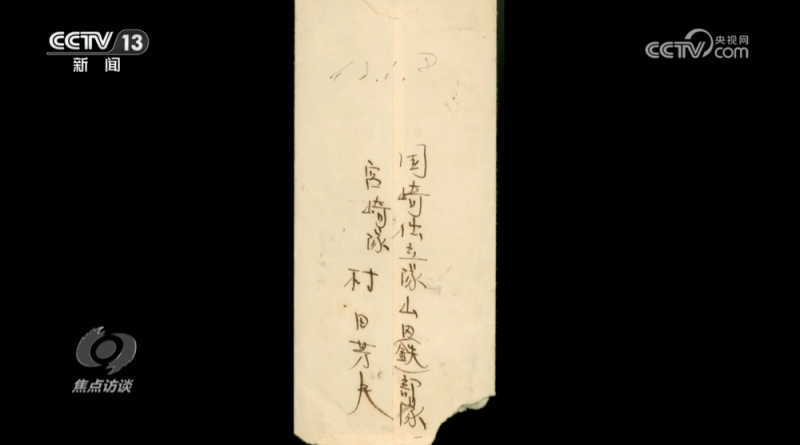 CCTV 13
新闻
央视网
CCTV.com
国崎仕立隊山田(鉄)部隊
宮崎隊 村田芳夫
焦点访谈